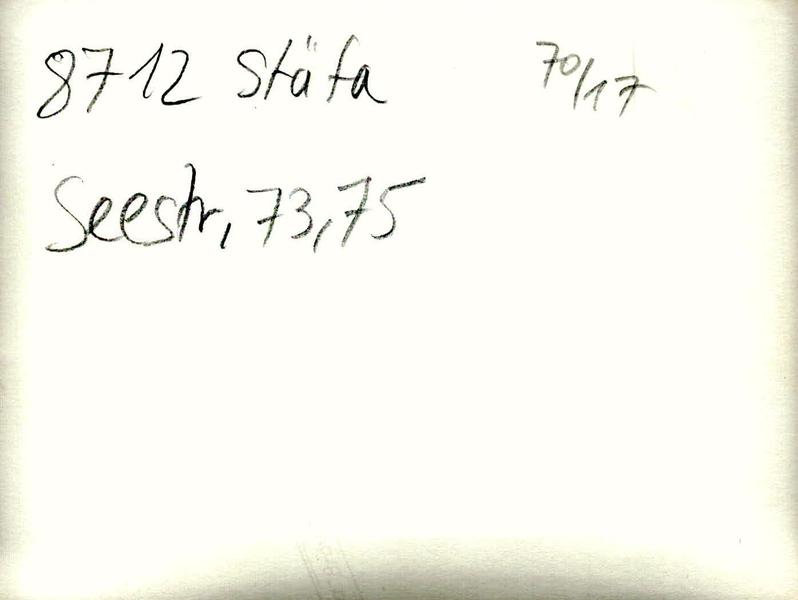 8712 Stäfa 70/17
Seestr, 73,75